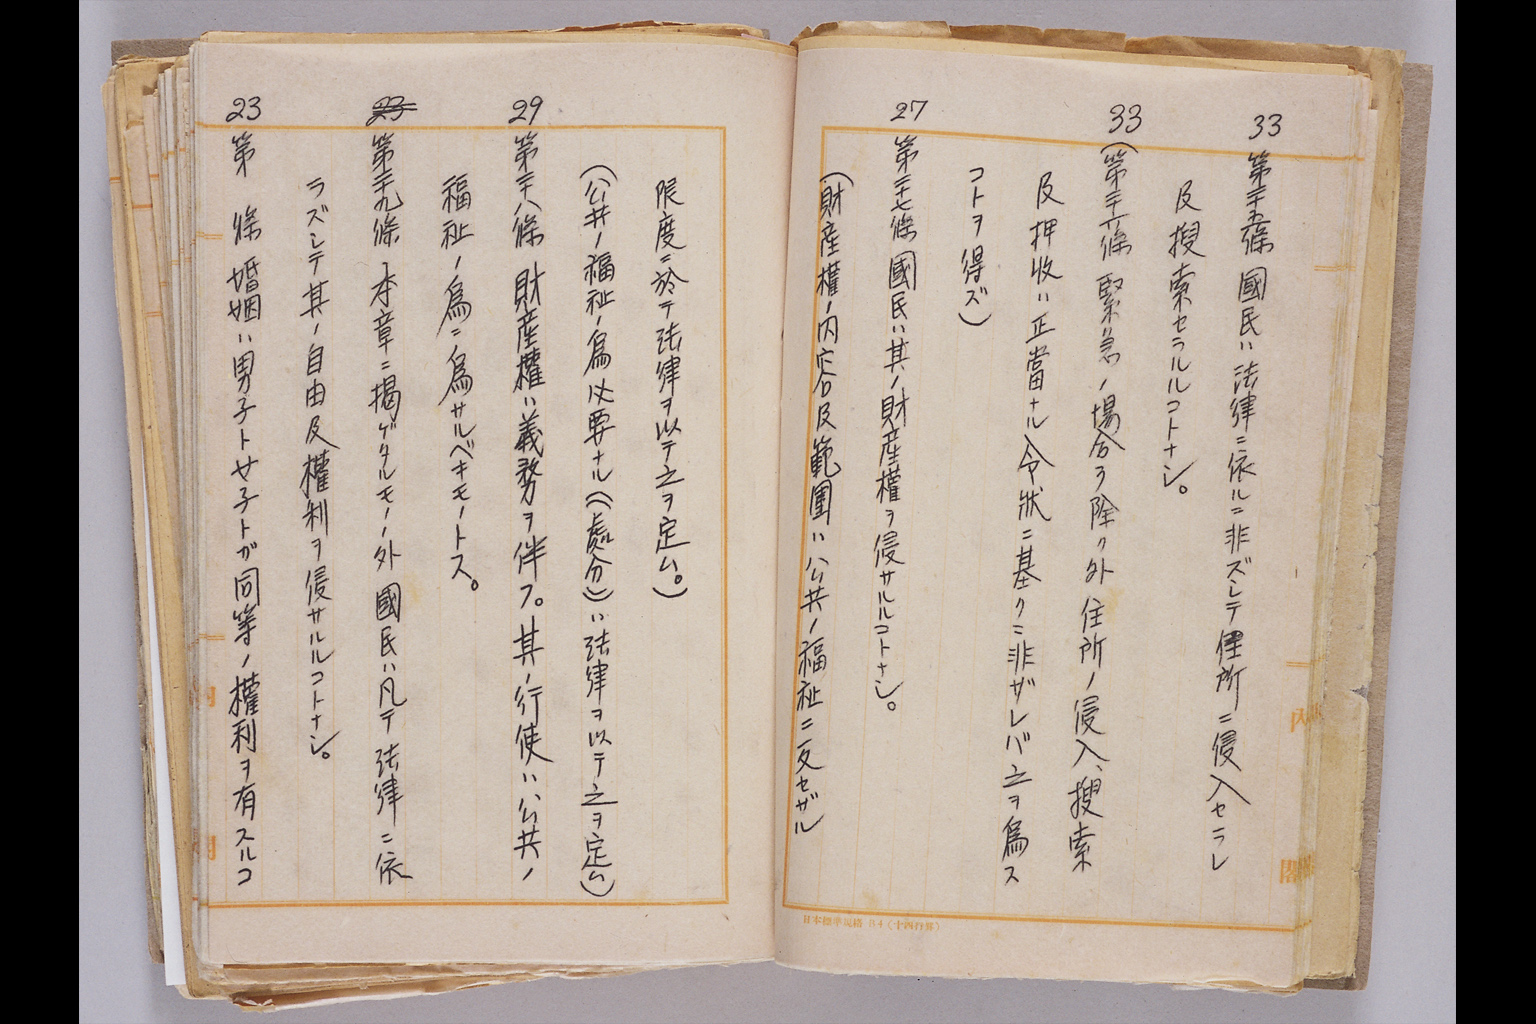 33
第二十五條 國民ハ法律ニ依ルニ非ズシテ住所ニ侵入セラレ
及搜索セラルルコトナシ。
33
(第二十六條 緊急ノ場合ヲ除ク外住所ノ侵入、搜索
及押收ハ正當ナル令狀ニ基クニ非ザレバ之ヲ爲ス
コトヲ得ズ)
27
第二十七條 國民ハ其ノ財産權ヲ侵サルルコトナシ。
(財産權ノ內容及範圍ハ公共ノ福祉ニ反セザル
日本標準規格 B4(十四行罫)
限度ニ於テ法律ヲ以テ之ヲ定ム。)
(公共ノ福祉ノ爲必要ナル(處分)ハ法律ヲ以テ之ヲ定ム)
29
第二十八條 財産權ハ義務ヲ伴フ。其ノ行使ハ公共ノ
福祉ノ爲ニ爲サルベキモノトス。
23
第二十九條 本章ニ揭ゲタルモノノ外國民ハ凡テ法律ニ依
ラズシテ其ノ自由及權利ヲ侵サルルコトナシ。
23
第 條 婚姻ハ男子ト女子トガ同等ノ權利ヲ有スルコ
內
閣